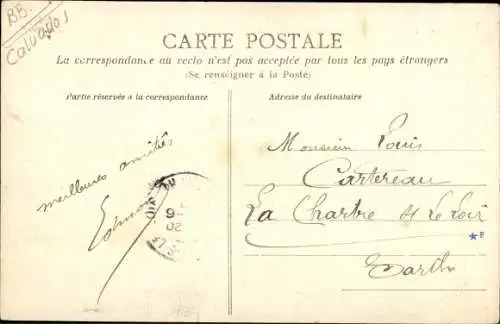 BB.
Calvados
CARTE POSTALE
La correspondance au recto n'est pas acceptée par tous les pays étrangers
(Se renseigner à la Poste)
Partie réservée à la correspondance
Adresse du destinataire
meilleures amitiés
Monsieur Louis
Cartereau
La Chartre s/ Le Loir
Sarthe